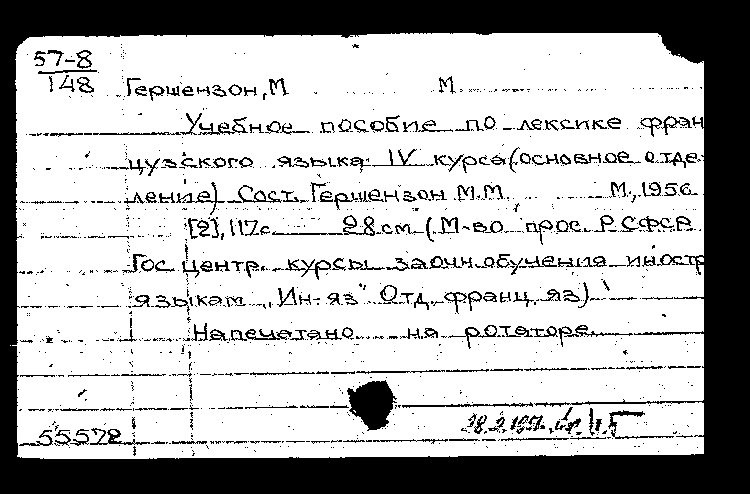 57-8
148
Гершензон, М М.
Учебное пособие по лексике фран
цузского языка IV курса (основное отде-
ление) Сост. Гершензон М.М. М., 1956
[2], 117с. 28см (М-во прос. РСФСР
Гос центр. курсы заочн. обучения иностр
языкам „Ин-яз" Отд. франц. яз)
Напечатано на ротаторе.
55572